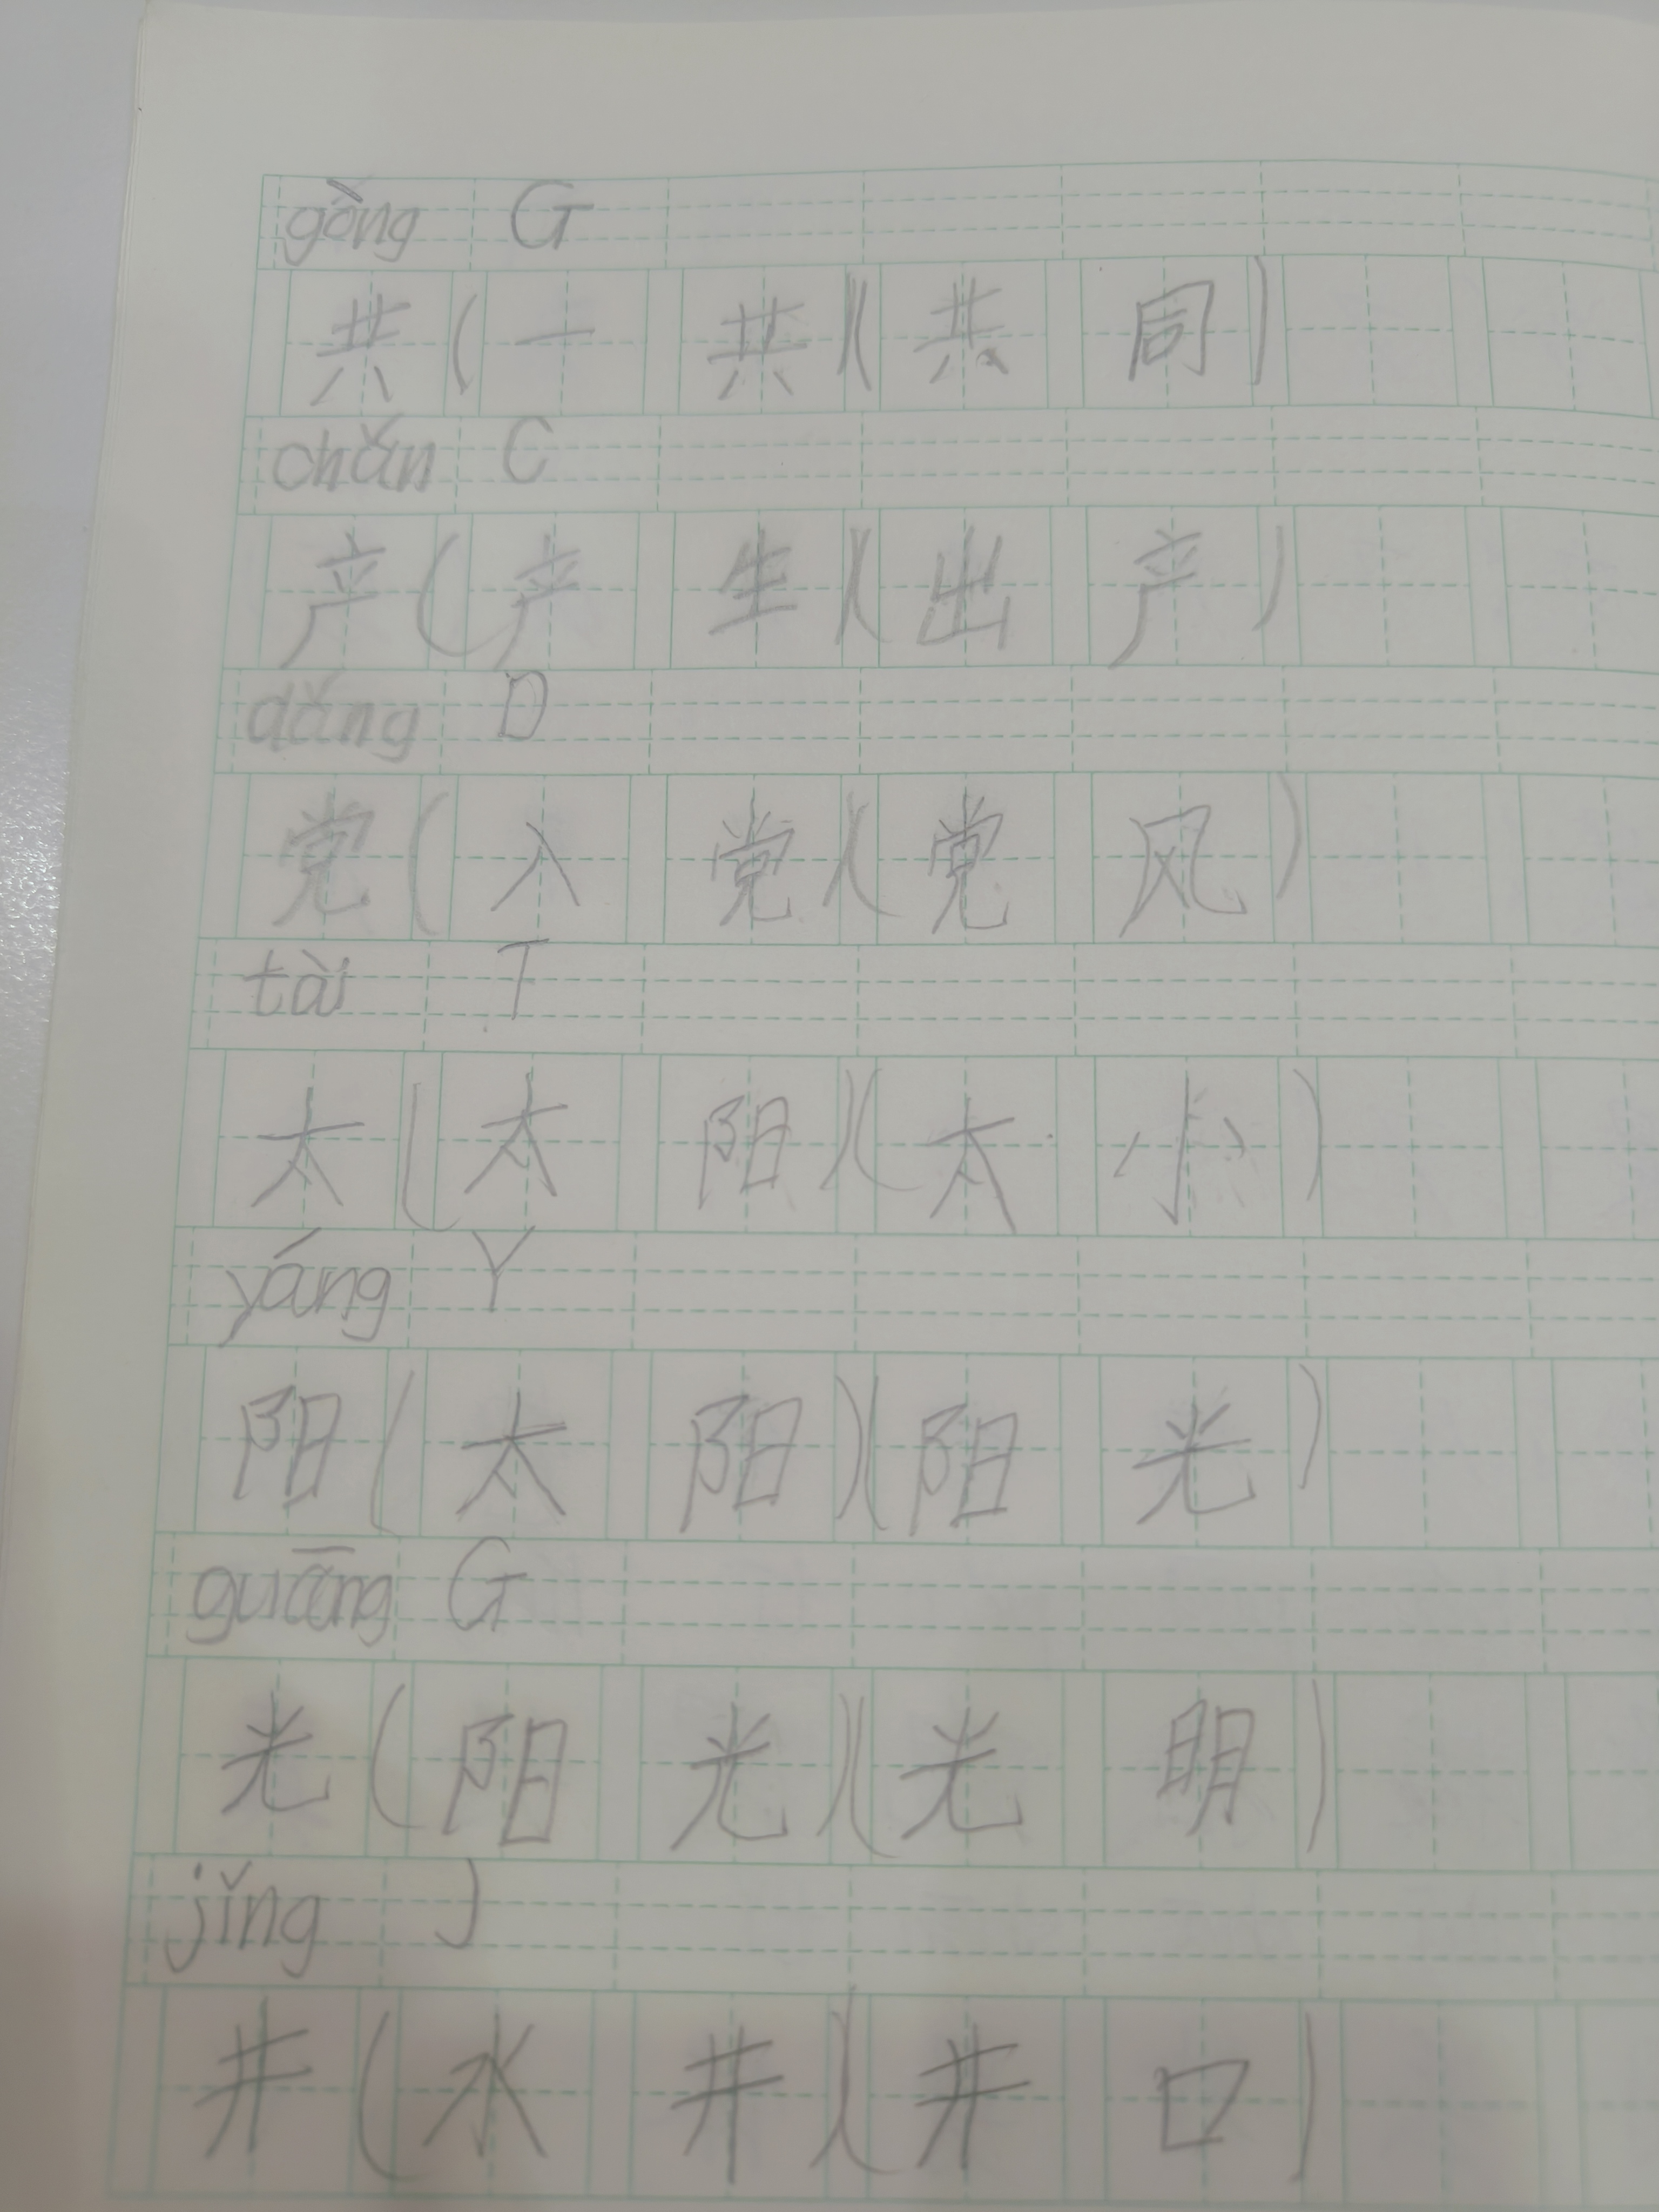 gòng G
共(一共)(共同)
chǎn C
产(产生)(出产)
dǎng D
党(入党)(党风)
tài T
太(太阳)(太小)
yáng Y
阳(太阳)(阳光)
guāng G
光(阳光)(光明)
jǐng J
井(水井)(井口)